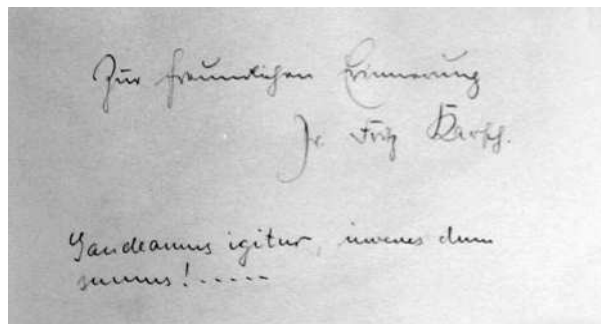 Zur freundlichen Erinnerung
Dr Fritz Karsch.
Gaudeamus igitur, iuvenes dum
sumus!.....